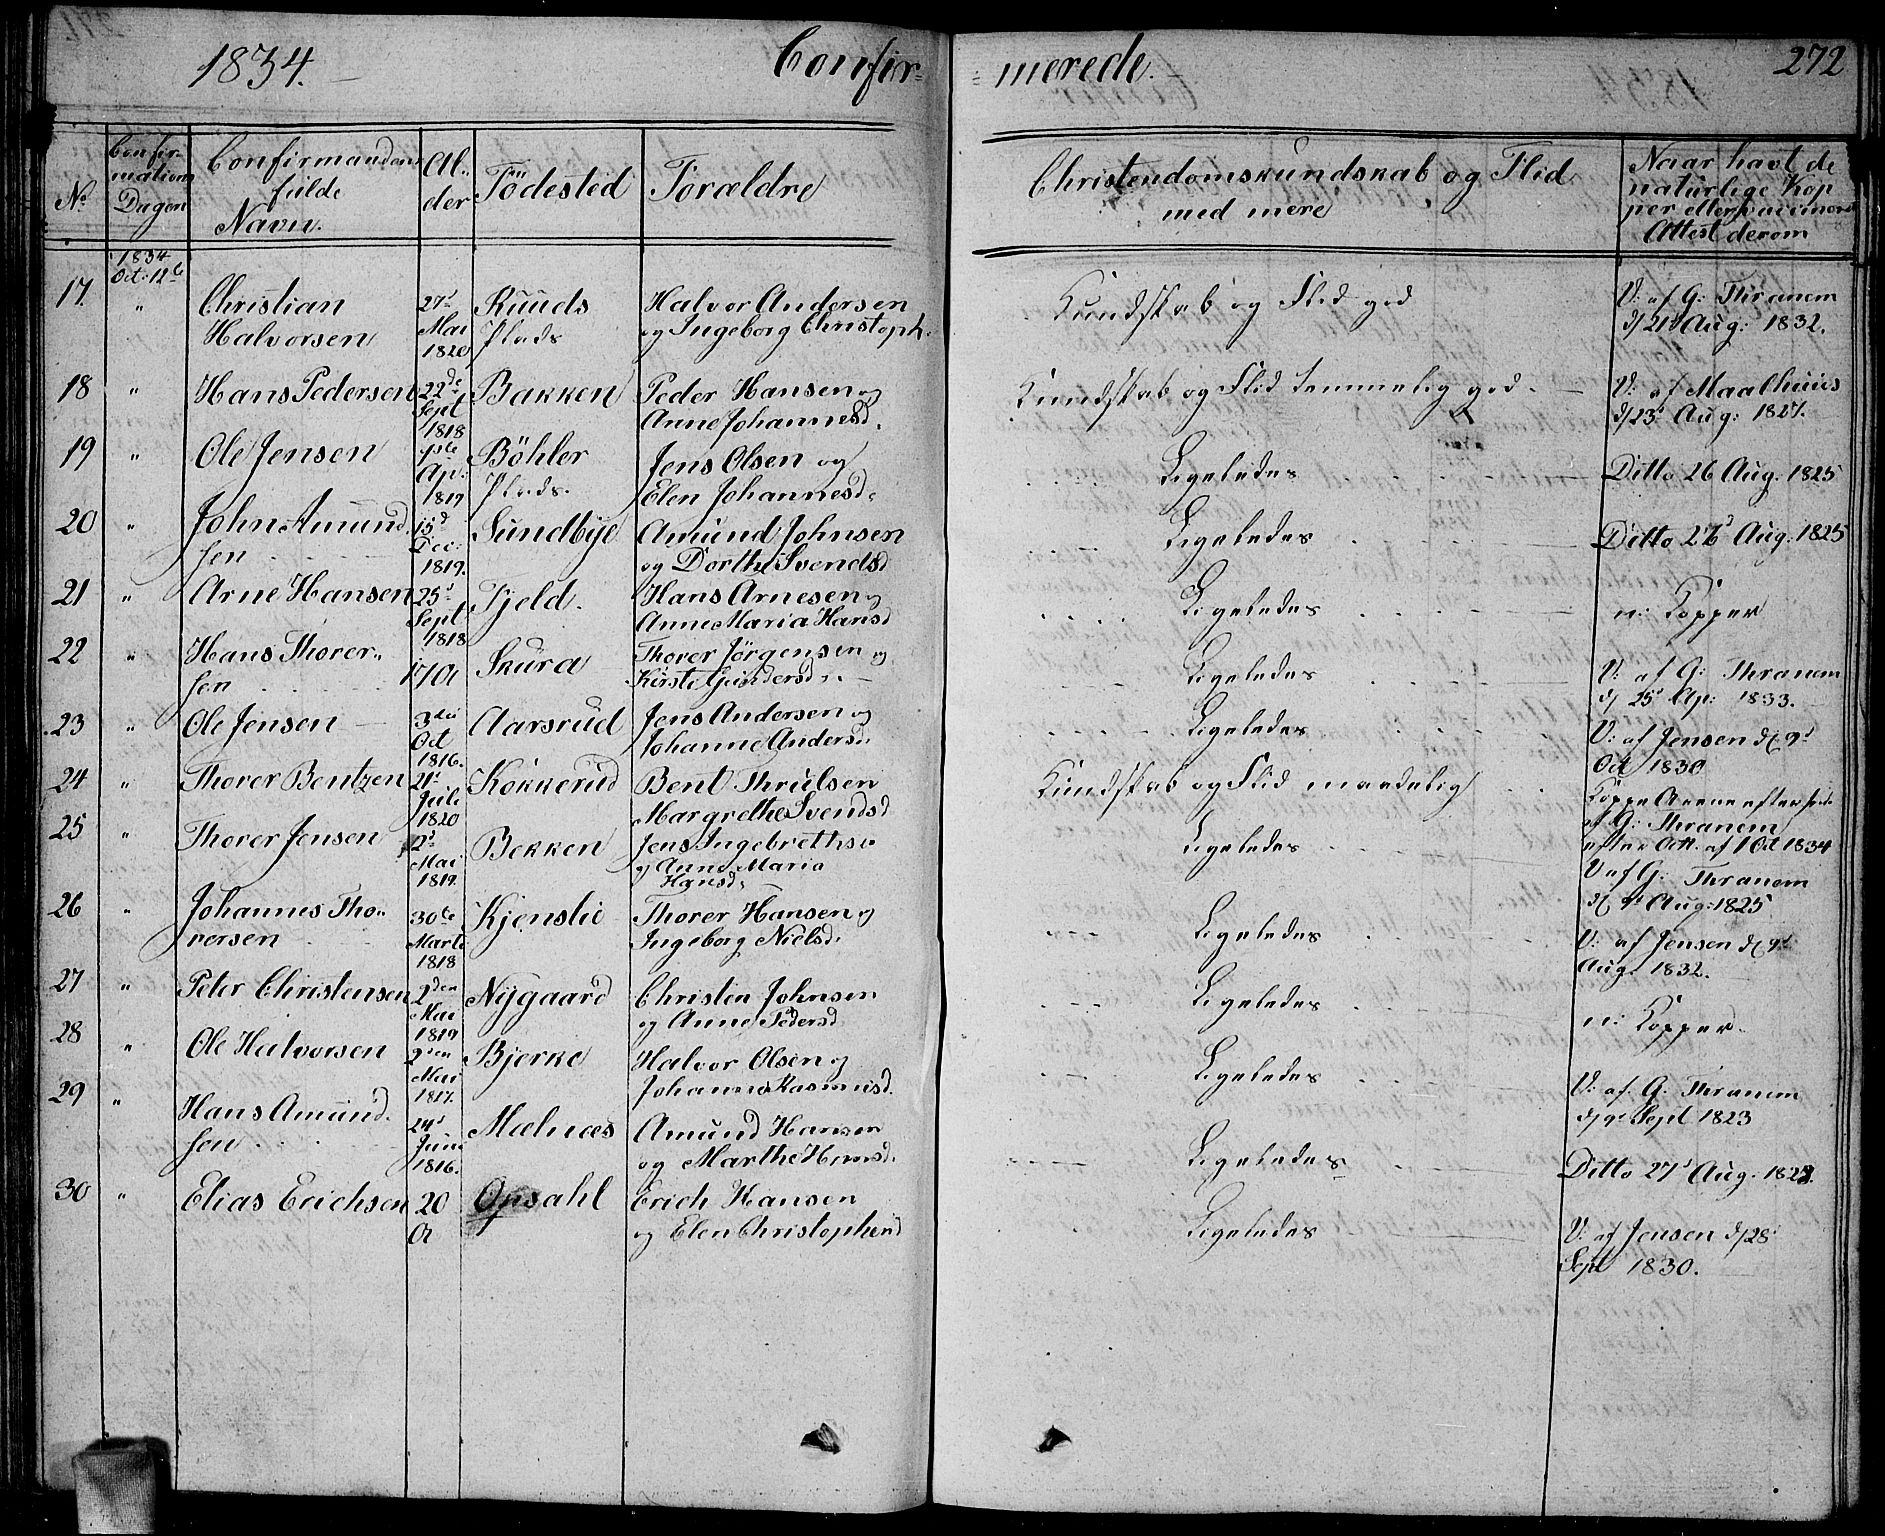 1834. Confir=
=merede. 272
No
Confir-
mations
Dagen
Confirmandens
fulde
Navn.
Al-
der
Födested
Forældre
Christendomskundskab og Flid
med mere
Naar havt de
naturlige Kop
per eller
Attest derom
1834
Oct: 12te
17 " Christian Halvorsen 27d Mai 1820 Ruuds Plads Halvor Andersen og Ingeborg Christoph. Kundskab og Flid god V: af G: Thranem d/21d Aug: 1832.
18 " Hans Pedersen 22de Sept 1818 Bakken Peder Hansen og Anne Johannesd. Kundskab og Flid temmelig god. V: af Maalhuus d/23d Aug: 1827.
19 " Ole Jensen 1ste Ap: 1819 Böhler Plads. Jens Olsen og Elen Johannesd. Ligeledes Ditto 26 Aug. 1825
20 " John Amund. sen 15d Dec: 1819. Sundbye Amund Johnsen og Dorthe Svendsd Ligeledes Ditto Aug. 1825
21 " Arne Hansen 25d Sept 1818 Fjeld. Hans Arnesen og Anne Maria Hansd Ligeledes n: Kopper
22 " Hans Thorer- sen 17 Skura Thorer Jörgensen og Kirsti Gundersd. Ligeledes V: af G: Thranem d/ 25d Ap: 1833.
23 " Ole Jensen 3die Oct 1816. Aarsrud Jens Andersen og Johanne Andersd. Ligeledes V: af Jensen d/ 9d Oct 1830
24 " Thorer Bentzen 21d Juli 1820 Kokkerud Bent Thrulsen Margrethe Svendsd Kundskab og Flid maadelig af G: Thranem efter Att. af 1 Oct 1834
25 " Thorer Jensen 2d Mai 1819. Bekken Jens Ingebrethsen og Anne Maria Hansd. Ligeledes V af G: Thranem Aug: 1825
26 " Johannes Tho- rersen 30te Marti 1818 Kjenslie Thorer Hansen og Ingeborg Nielsd. Ligeledes V: af Jensen d/ 9d Aug. 1832.
27 " Peter Christensen 2den Mai 1819 Nygaard Christen Johnsen og Anne Pedersd. Ligeledes n: Kopper
28 " Ole Halvorsen 2den Mai 1817. Bjerke Halvor Olsen og Johanne Rasmusd. Ligeledes V: af. G: Thranem d/9d Sept 1823
29 " Hans Amund. sen 24d Juni 1816. Mælnæs Amund Hansen og Marthe Hansd. Ligeledes Ditto 27d Aug.
30 " Elias Erichsen 20 Opsahl Erich Hansen og Elen Christophersd Ligeledes V: af Jensen d/28 Sept 1830.